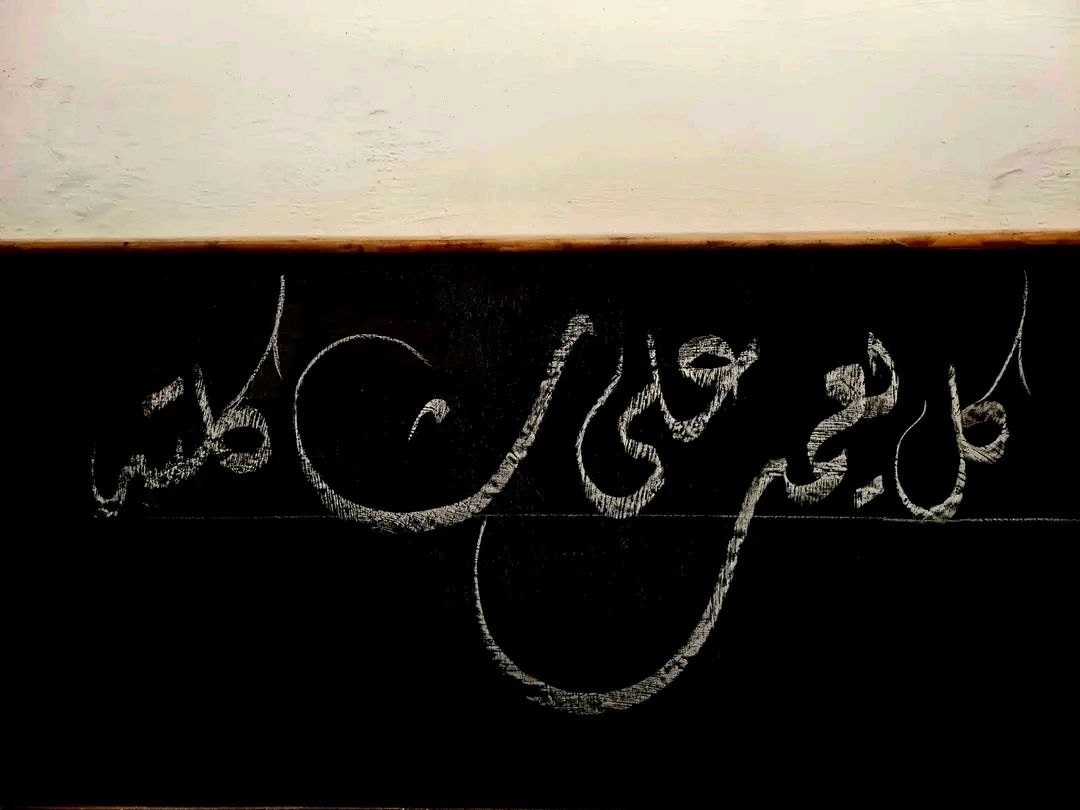 كل يعمل على شاكلته